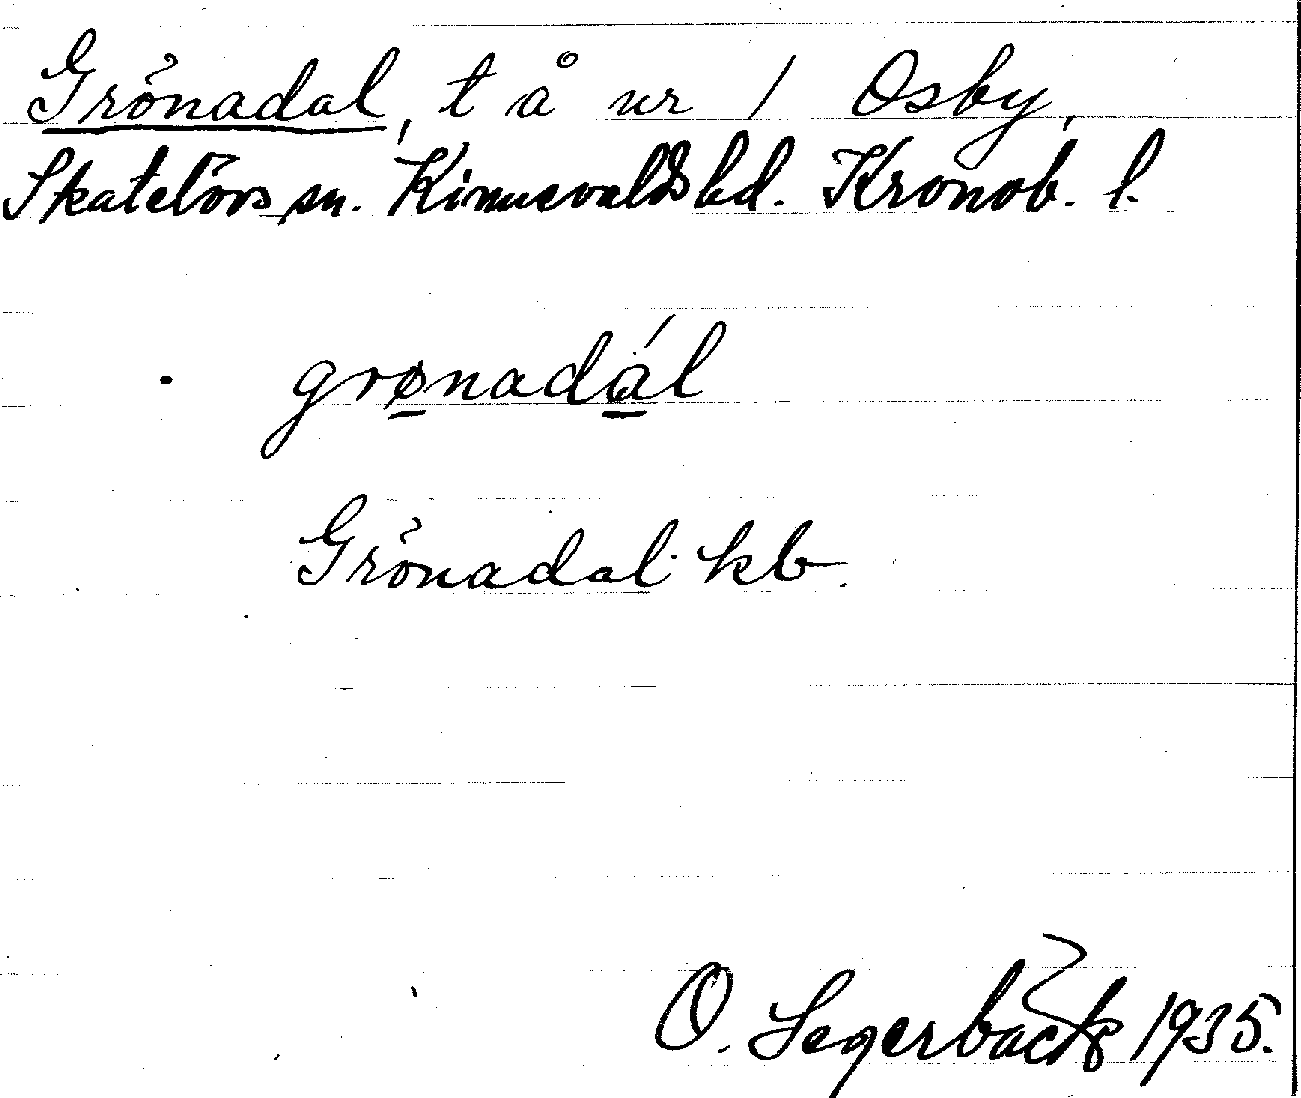 Grönadal, t å nr 1 Osby,
Skatelövs sn. Kinnevalds hd. Kronob. l.
grønadál
Grönadal kb.
O. Segerbäck 1935.